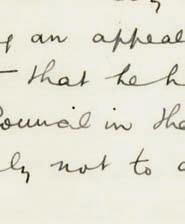 an appeal
that he h
Council in the
ly not to a